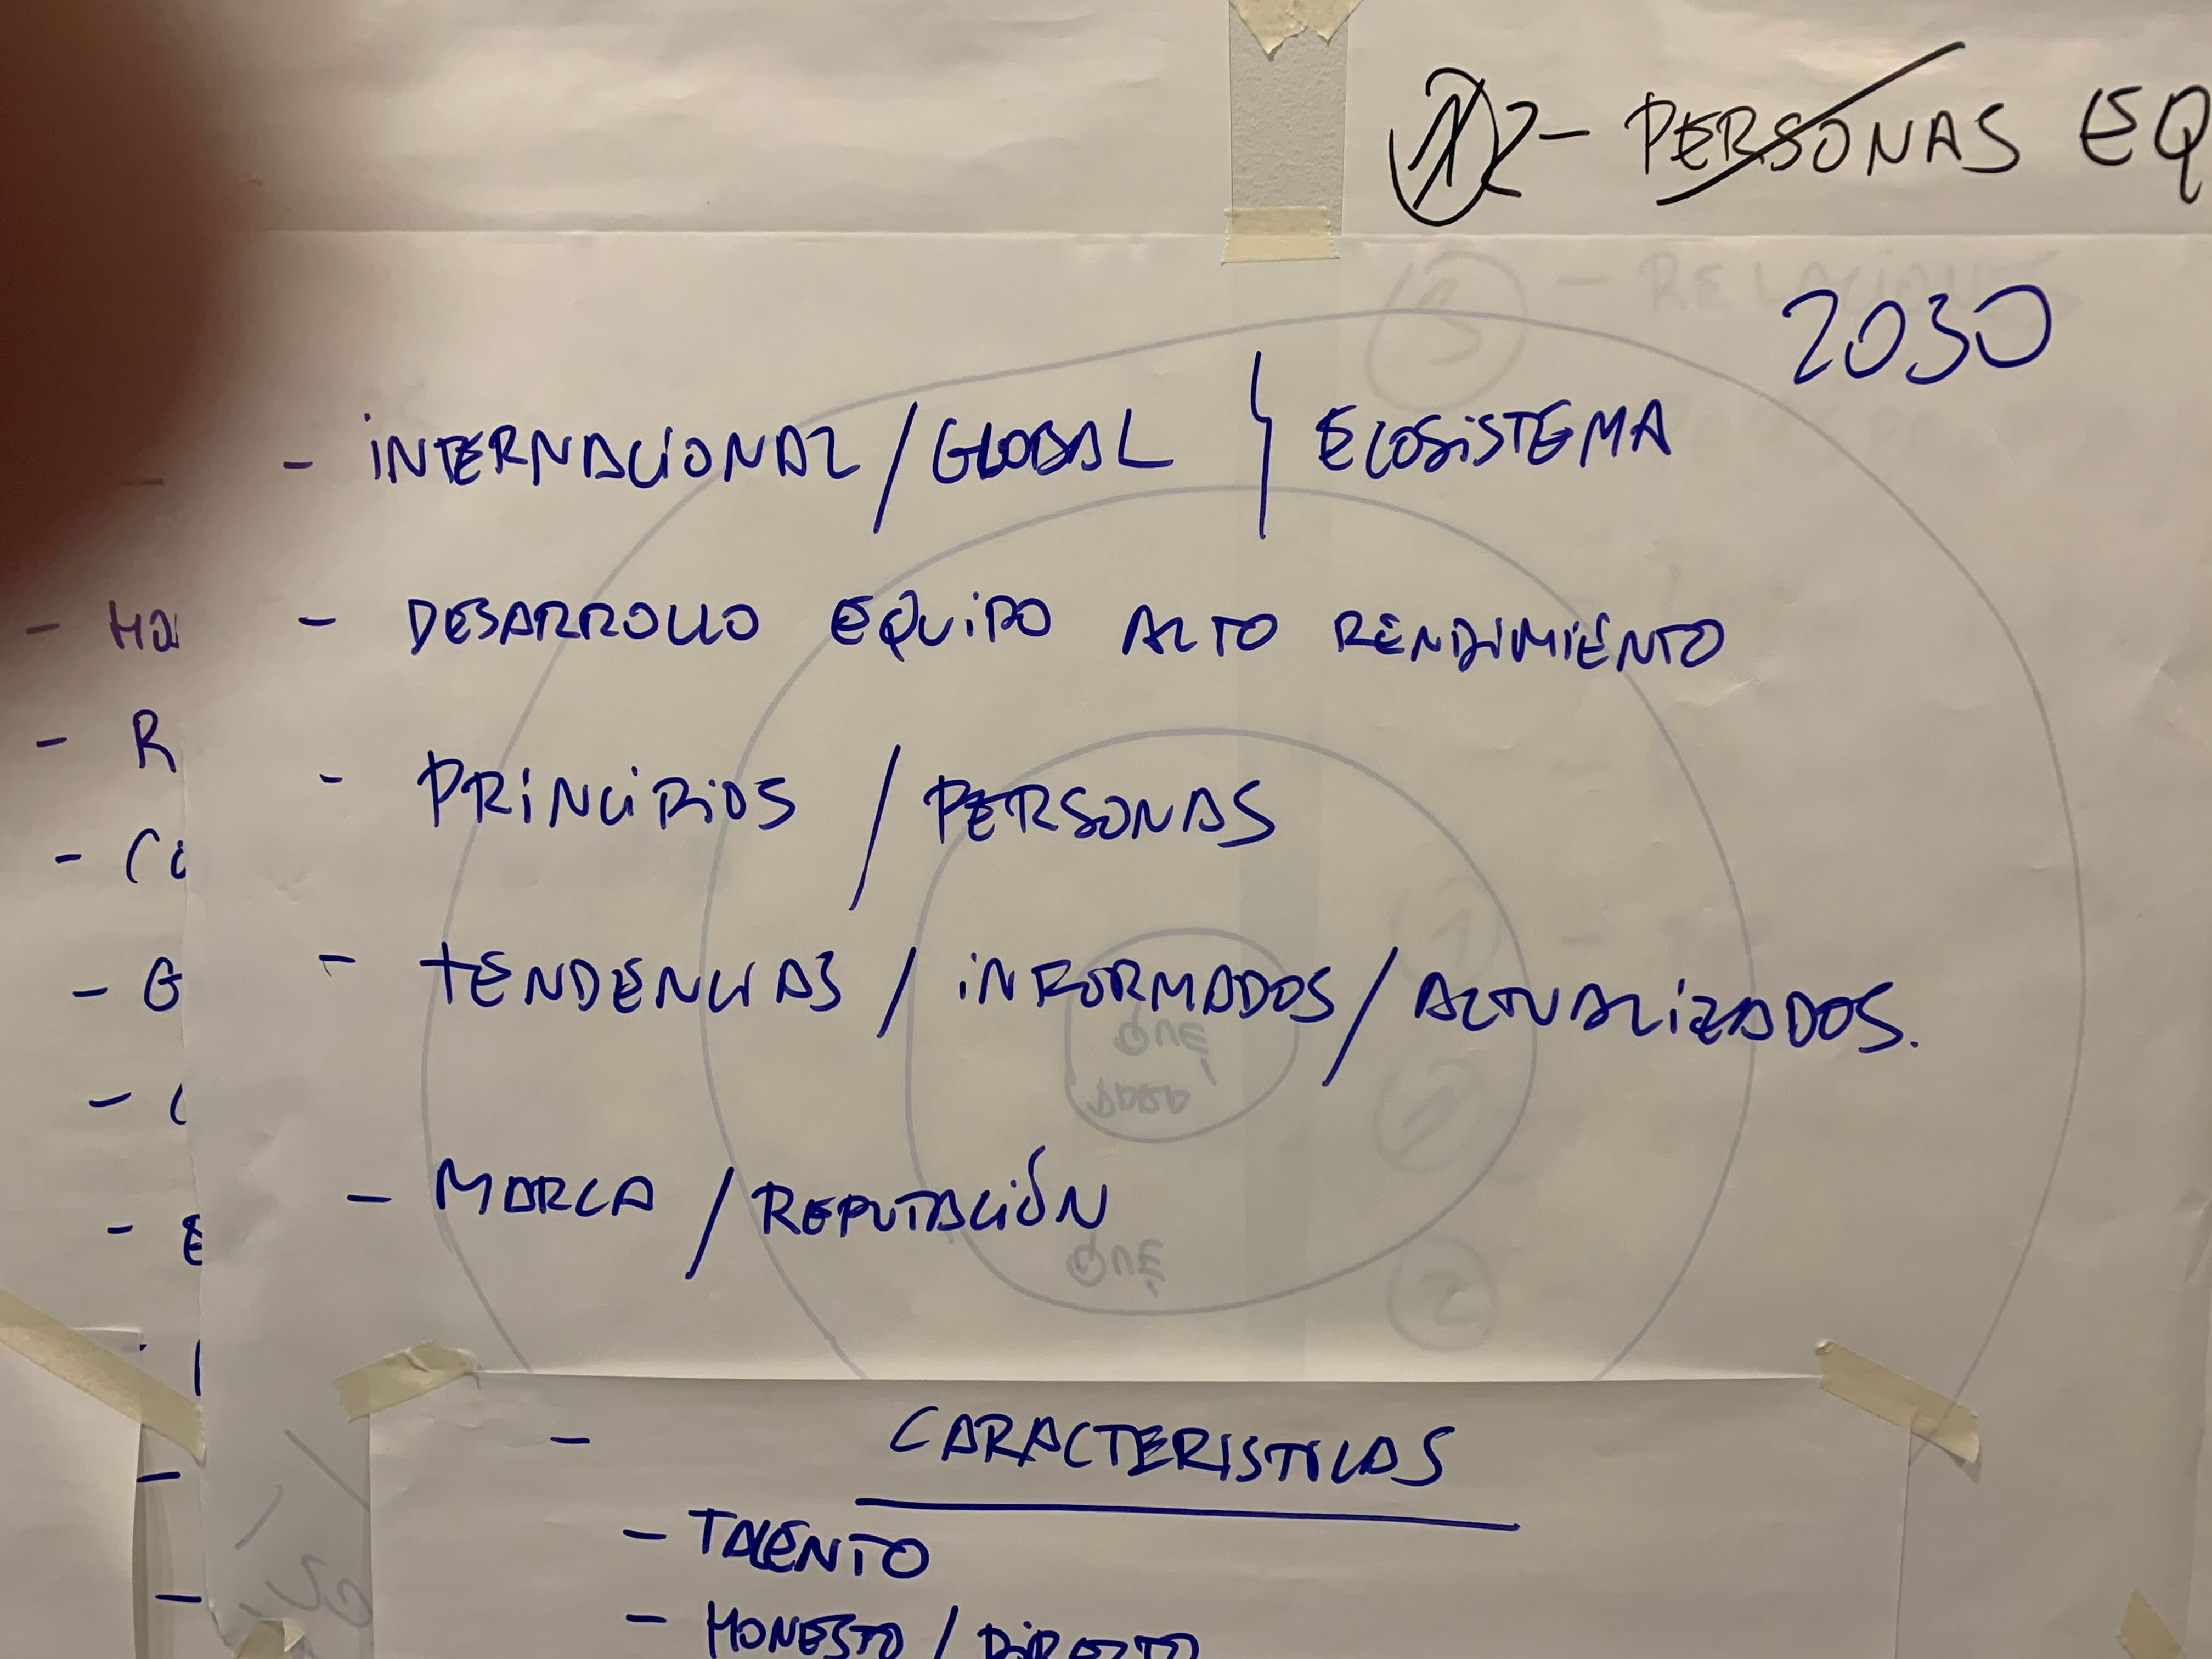 2- PERSONAS EQ
2030
- INTERNACIONAL / GLOBAL | ECOSISTEMA
- DESARROLLO EQUIPO ALTO RENDIMIENTO
- PRINCIPIOS / PERSONAS
- TENDENCIAS / INFORMADOS / ACTUALIZADOS.
- MARCA / REPUTACIÓN
- CARACTERISTICAS
- TALENTO
- HONESTO / DIRECTO
- R
- CO
- G
- E
3 - RELACIONES
QUÉ
QUÉ
2